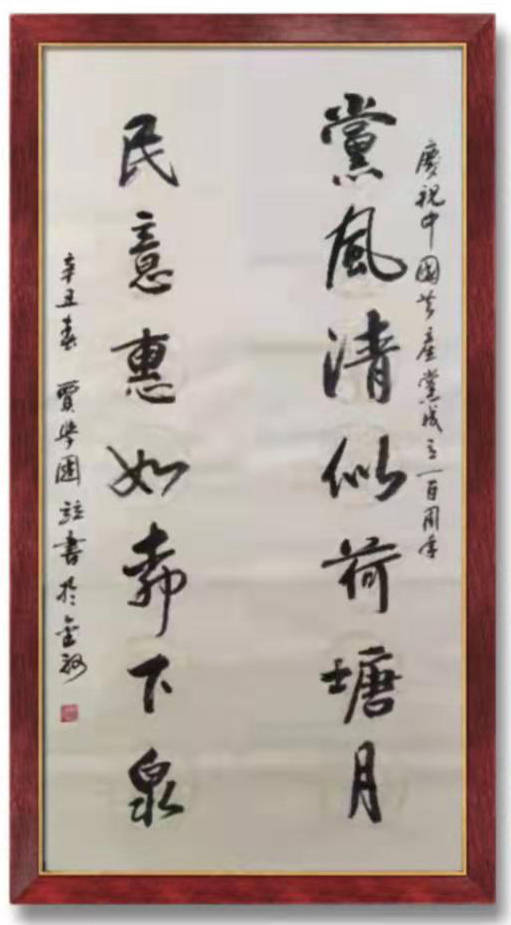 慶祝中國共產黨成立一百周年
黨風清似荷塘月
民意惠如下泉
辛丑春 賈學國 書於金